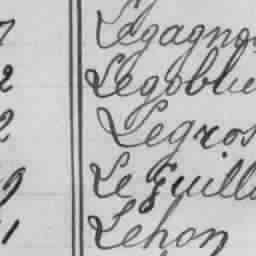 7 Legagno
2 Legoblu
2 Legros
9 Le Guill
1 Lehon